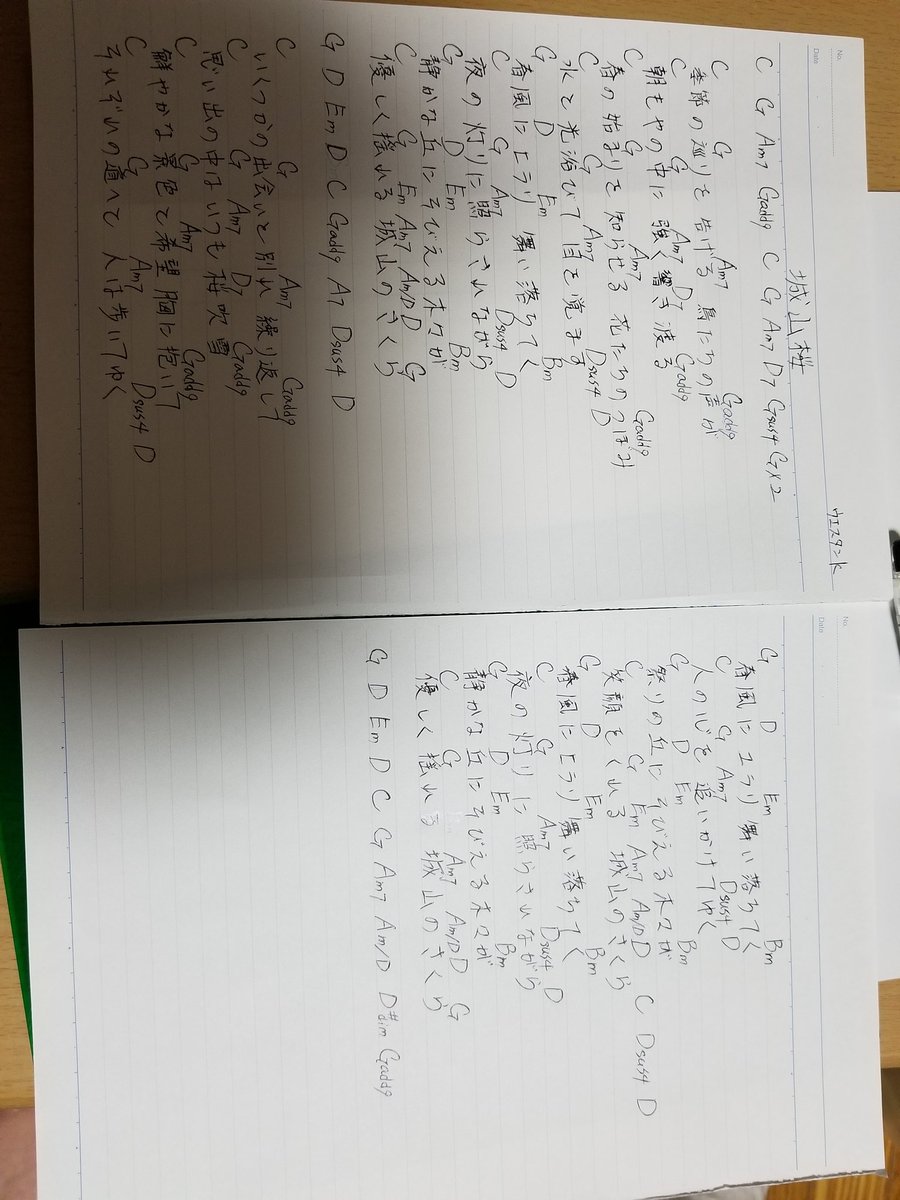 No.
Date
城山桜
ウエスタンK
C G Am7 Gadd9 C G Am7 D7 Gsus4 G×2
C G Am7 Gadd9
季節の巡りを告げる 鳥たちの声が
C G Am7 D7 Gadd9
朝もやの中に 強く響き渡る
C G Am7 Gadd9
春の始まりを知らせる 花たちのつぼみ
C G Am7 Dsus4 D
水と光浴びて目を覚ます
G D Em Bm
春風にヒラリ 舞い落ちてく
C G Am7 Dsus4 D
夜の灯りに照らされながら
G D Em Bm
静かな丘にそびえる木々が
C G Em Am7 Am/D D G
優しく揺れる 城山のさくら
G D Em D C Gadd9 A7 Dsus4 D
C G Am7 Gadd9
いくつかの出会いと別れ 繰り返して
C G Am7 D7 Gadd9
思い出の中はいつも桜吹雪
C G Am7 Gadd9
鮮やかな景色と希望胸に抱いて
C G Am7 Dsus4 D
それぞれの道へと 人は歩いてゆく
No.
Date
G D Em Bm
春風にユラリ 舞い落ちてく
C G Am7 Dsus4 D
人の心を追いかけてゆく
G D Em Bm
祭りの丘にそびえる木々が
C G Em Am7 Am/D D C Dsus4 D
笑顔をくれる 城山のさくら
G D Em Bm
春風にヒラリ 舞い落ちてく
C G Am7 Dsus4 D
夜の灯りに 照らされながら
G D Em Bm
静かな丘にそびえる木々が
C G Am7 Am/D D G
優しく揺れる 城山のさくら
G D Em D C G Am7 Am/D D#dim Gadd9